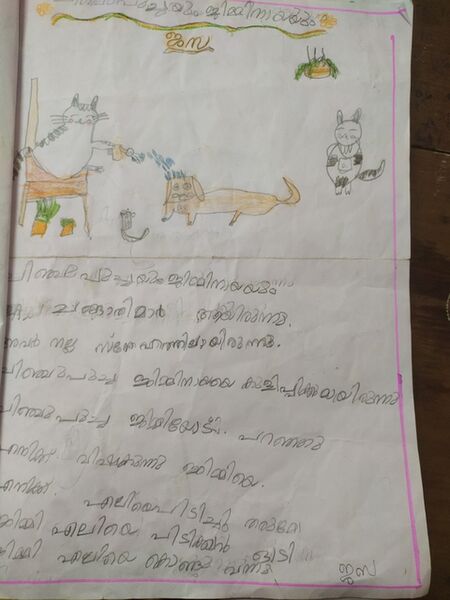 പൂച്ചയും ജിമ്മിനായയും
ജസ
ചിഞ്ചുപൂച്ചയും ജിമ്മിനായയും
ചങ്ങാതിമാർ ആയിരുന്നു.
അവർ നല്ല സ്നേഹത്തിലായിരുന്നു.
ചിഞ്ചുപൂച്ച ജിമ്മിനായയെ കുളിപ്പിക്കുമായിരുന്നു
ചിഞ്ചുപൂച്ച ജിമ്മിയോട് പറഞ്ഞു
എനിക്ക് വിശക്കുന്നു ജിമ്മിയെ.
എനിക്ക് എലിയെപിടിച്ചു തരുമോ
ജിമ്മി എലിയെ പിടിക്കാൻ ഓടി
ജിമ്മി എലിയെ കൊണ്ടു വന്നു ജസ